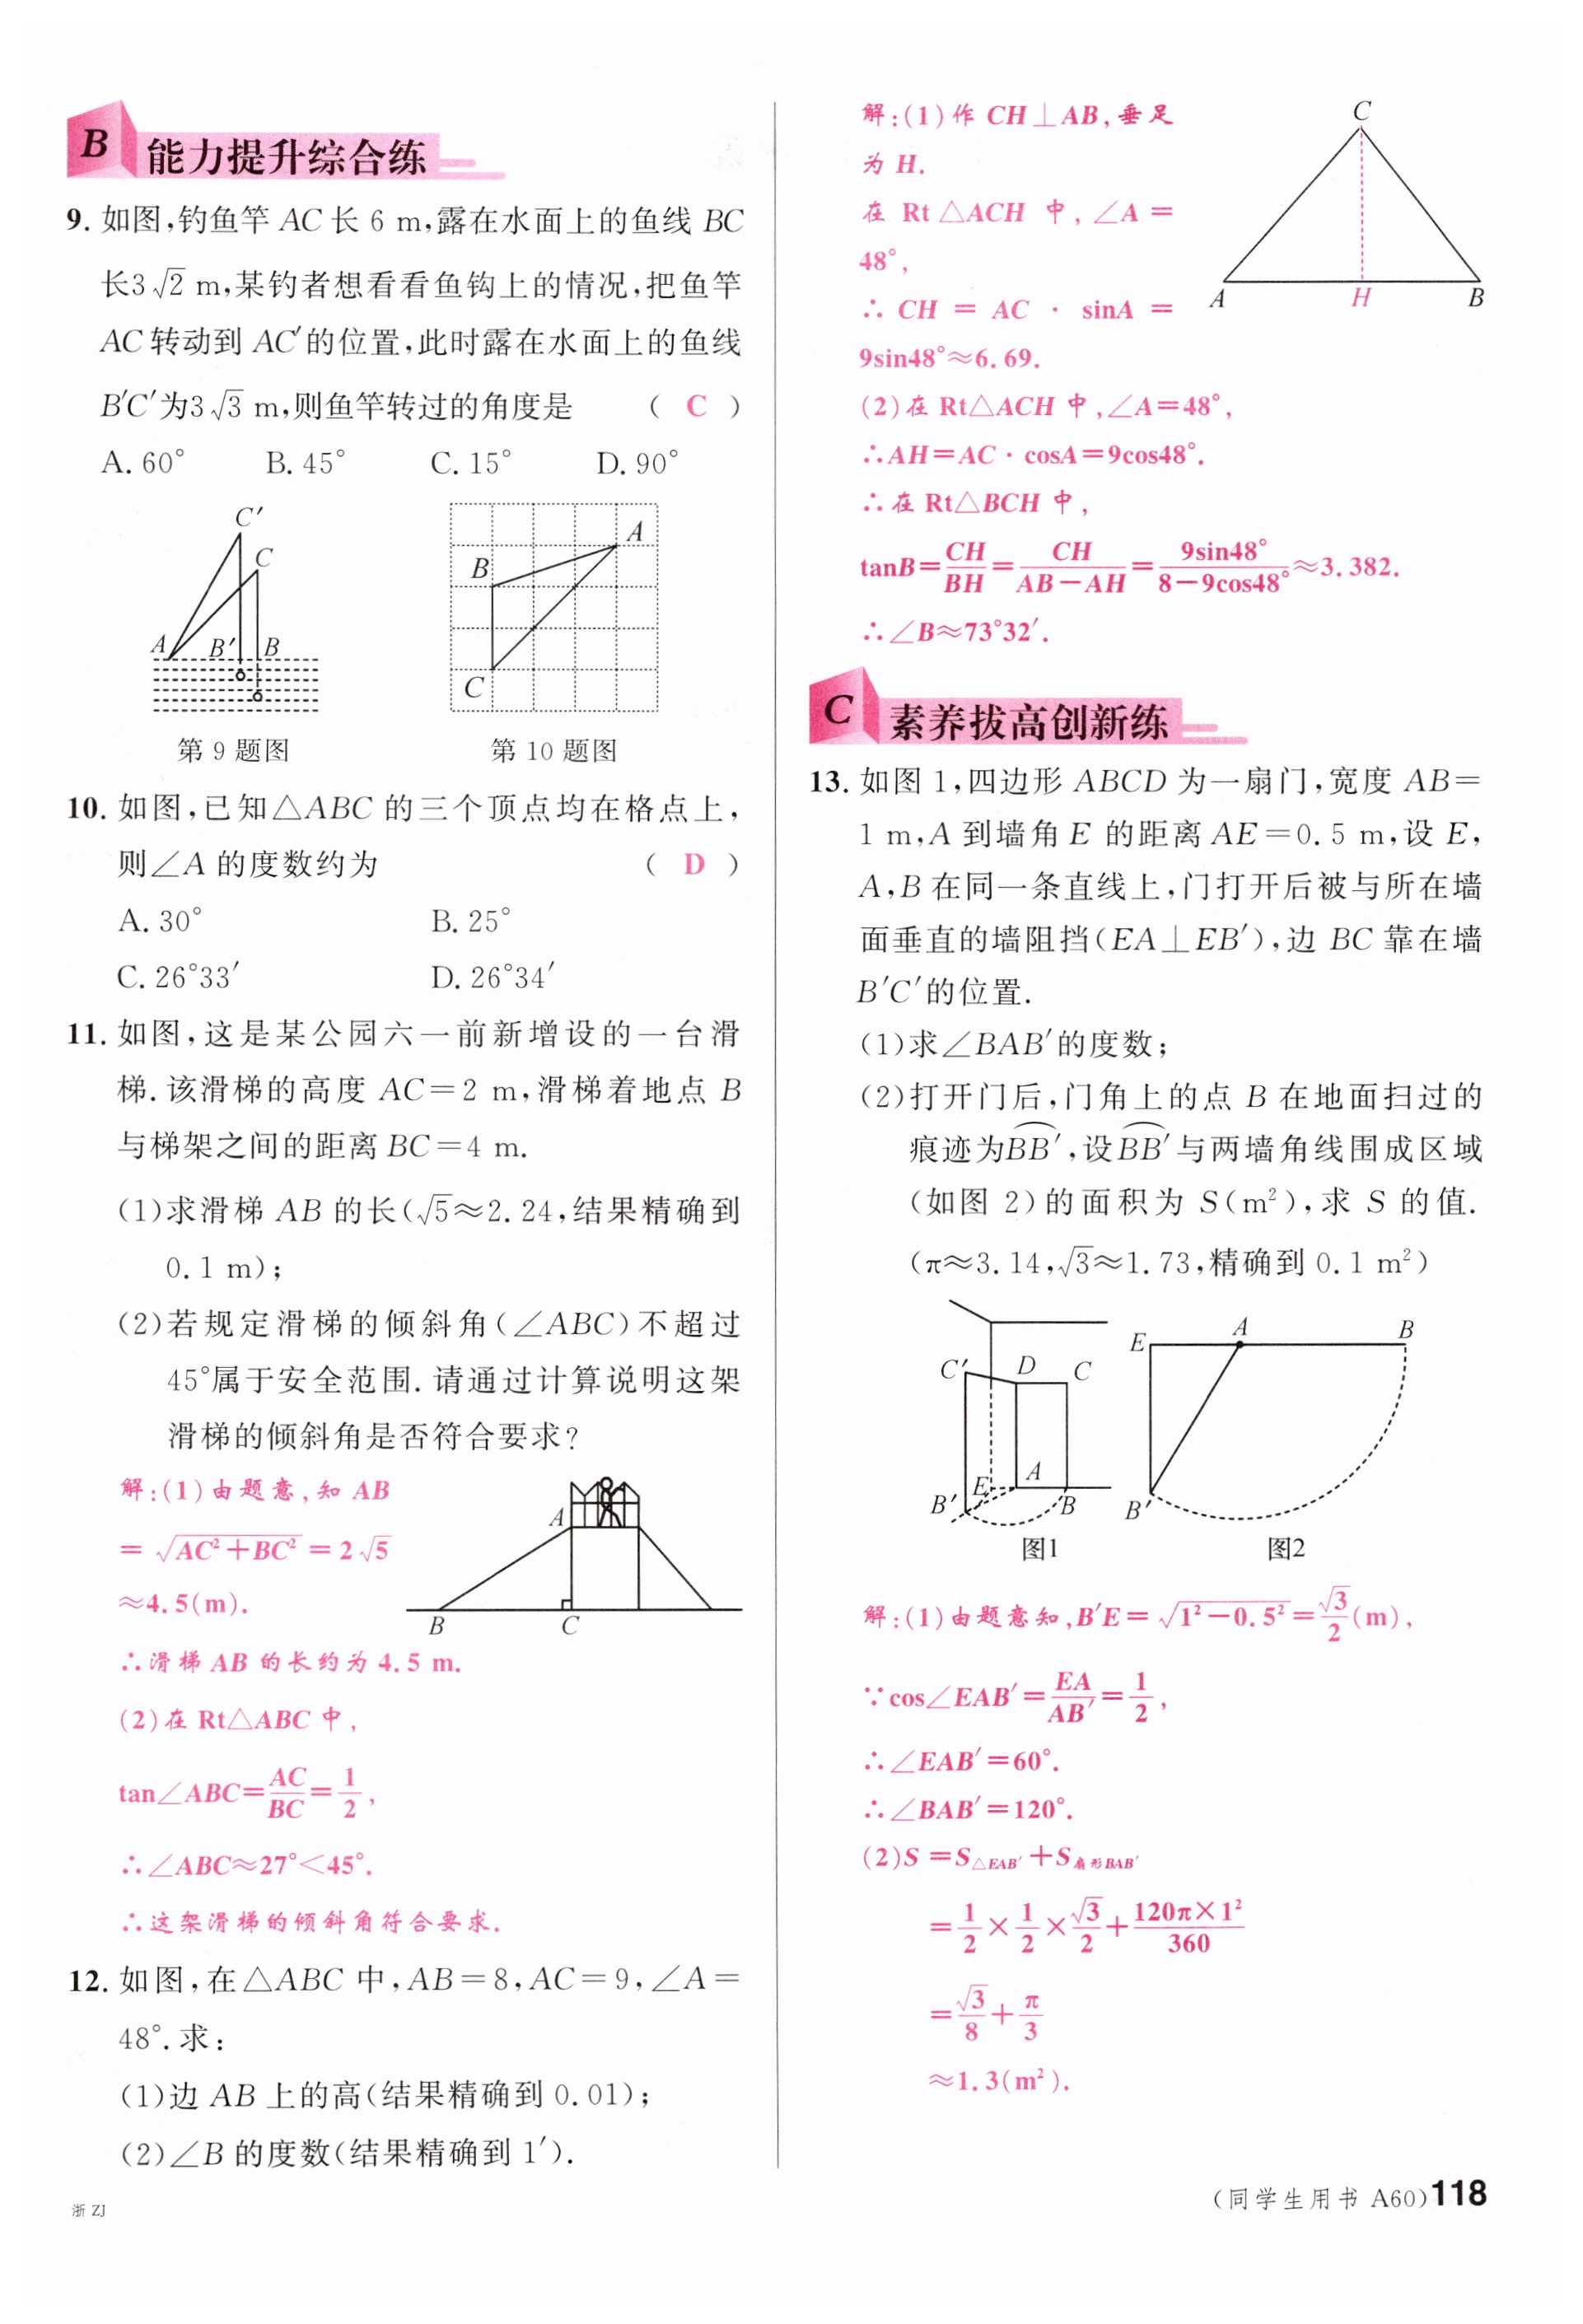 B 能力提升综合练
9. 如图,钓鱼竿 AC 长 6 m,露在水面上的鱼线 BC
长3√2 m,某钓者想看看鱼钩上的情况,把鱼竿
AC 转动到 AC′的位置,此时露在水面上的鱼线
B′C′为3√3 m,则鱼竿转过的角度是 ( C )
A. 60° B. 45° C. 15° D. 90°
C′
C
A B′ B
A
B
C
第 9 题图 第 10 题图
10. 如图,已知△ABC 的三个顶点均在格点上,
则∠A 的度数约为 ( D )
A. 30° B. 25°
C. 26°33′ D. 26°34′
11. 如图,这是某公园六一前新增设的一台滑
梯.该滑梯的高度 AC=2 m,滑梯着地点 B
与梯架之间的距离 BC=4 m.
(1)求滑梯 AB 的长(√5≈2.24,结果精确到
0.1 m);
(2)若规定滑梯的倾斜角(∠ABC)不超过
45°属于安全范围.请通过计算说明这架
滑梯的倾斜角是否符合要求?
解:(1)由题意,知 AB
= √AC²+BC² = 2√5
≈4.5(m).
A
B C
∴滑梯 AB 的长约为 4.5 m.
(2)在 Rt△ABC 中,
tan∠ABC=AC/BC=1/2,
∴∠ABC≈27°<45°.
∴这架滑梯的倾斜角符合要求.
12. 如图,在△ABC 中,AB=8,AC=9,∠A=
48°.求:
(1)边 AB 上的高(结果精确到 0.01);
(2)∠B 的度数(结果精确到 1′).
浙 ZJ
解:(1)作 CH⊥AB,垂足
为 H.
在 Rt △ACH 中,∠A =
48°,
∴ CH = AC · sinA =
9sin48°≈6.69.
C
A H B
(2)在 Rt△ACH 中,∠A=48°,
∴AH=AC · cosA=9cos48°.
∴在 Rt△BCH 中,
tanB=CH/BH=CH/(AB-AH)=9sin48°/(8-9cos48°)≈3.382.
∴∠B≈73°32′.
C 素养拔高创新练
13. 如图 1,四边形 ABCD 为一扇门,宽度 AB=
1 m,A 到墙角 E 的距离 AE=0.5 m,设 E,
A,B 在同一条直线上,门打开后被与所在墙
面垂直的墙阻挡(EA⊥EB′),边 BC 靠在墙
B′C′的位置.
(1)求∠BAB′的度数;
(2)打开门后,门角上的点 B 在地面扫过的
痕迹为⌒BB′,设⌒BB′与两墙角线围成区域
(如图 2)的面积为 S(m²),求 S 的值.
(π≈3.14,√3≈1.73,精确到 0.1 m²)
C′ D C
E A
B′ B
图1
E A B
B′
图2
解:(1)由题意知,B′E=√1²-0.5²=√3/2(m),
∵cos∠EAB′=EA/AB′=1/2,
∴∠EAB′=60°.
∴∠BAB′=120°.
(2)S =S△EAB′+S扇形BAB′
=1/2×1/2×√3/2+120π×1²/360
=√3/8+π/3
≈1.3(m²).
(同学生用书 A60)118